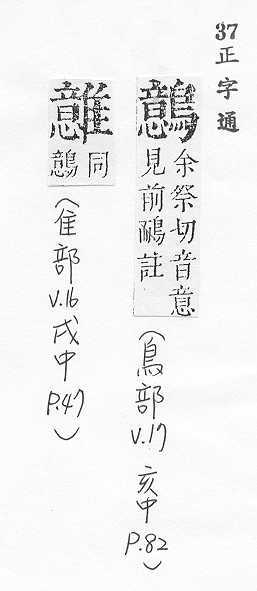 37正字通
鷾
余祭切音意
見前鴯註
(鳥部 V.17 亥中 P.82)
同
鷾
(隹部 V.16 戌中 P.47)